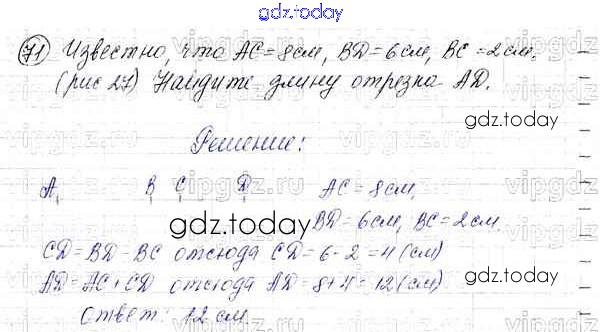 gdz.today
71 Известно, что AC = 8 см, BD = 6 см, BC = 2 см.
(рис 27) Найдите длину отрезка AD.
gdz.today
Решение:
A B C D AC = 8 см,
gdz.today
BD = 6 см, BC = 2 см.
CD = BD - BC отсюда CD = 6 - 2 = 4 (см)
gdz.today
AD = AC + CD отсюда AD = 8 + 4 = 12 (см)
Ответ: 12 см.